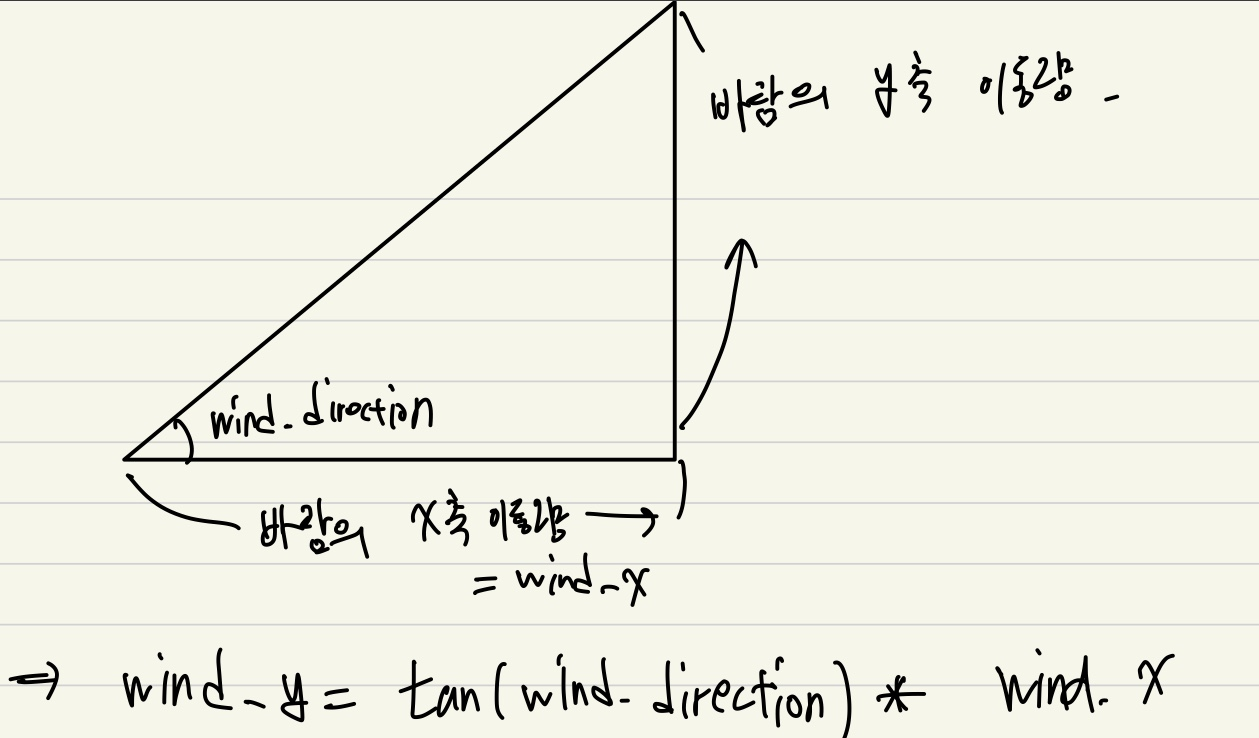 바람의 y축 이동량
wind_direction
바람의 x축 이동량 →
= wind_x
⇒ wind_y = tan(wind_direction) * wind_x